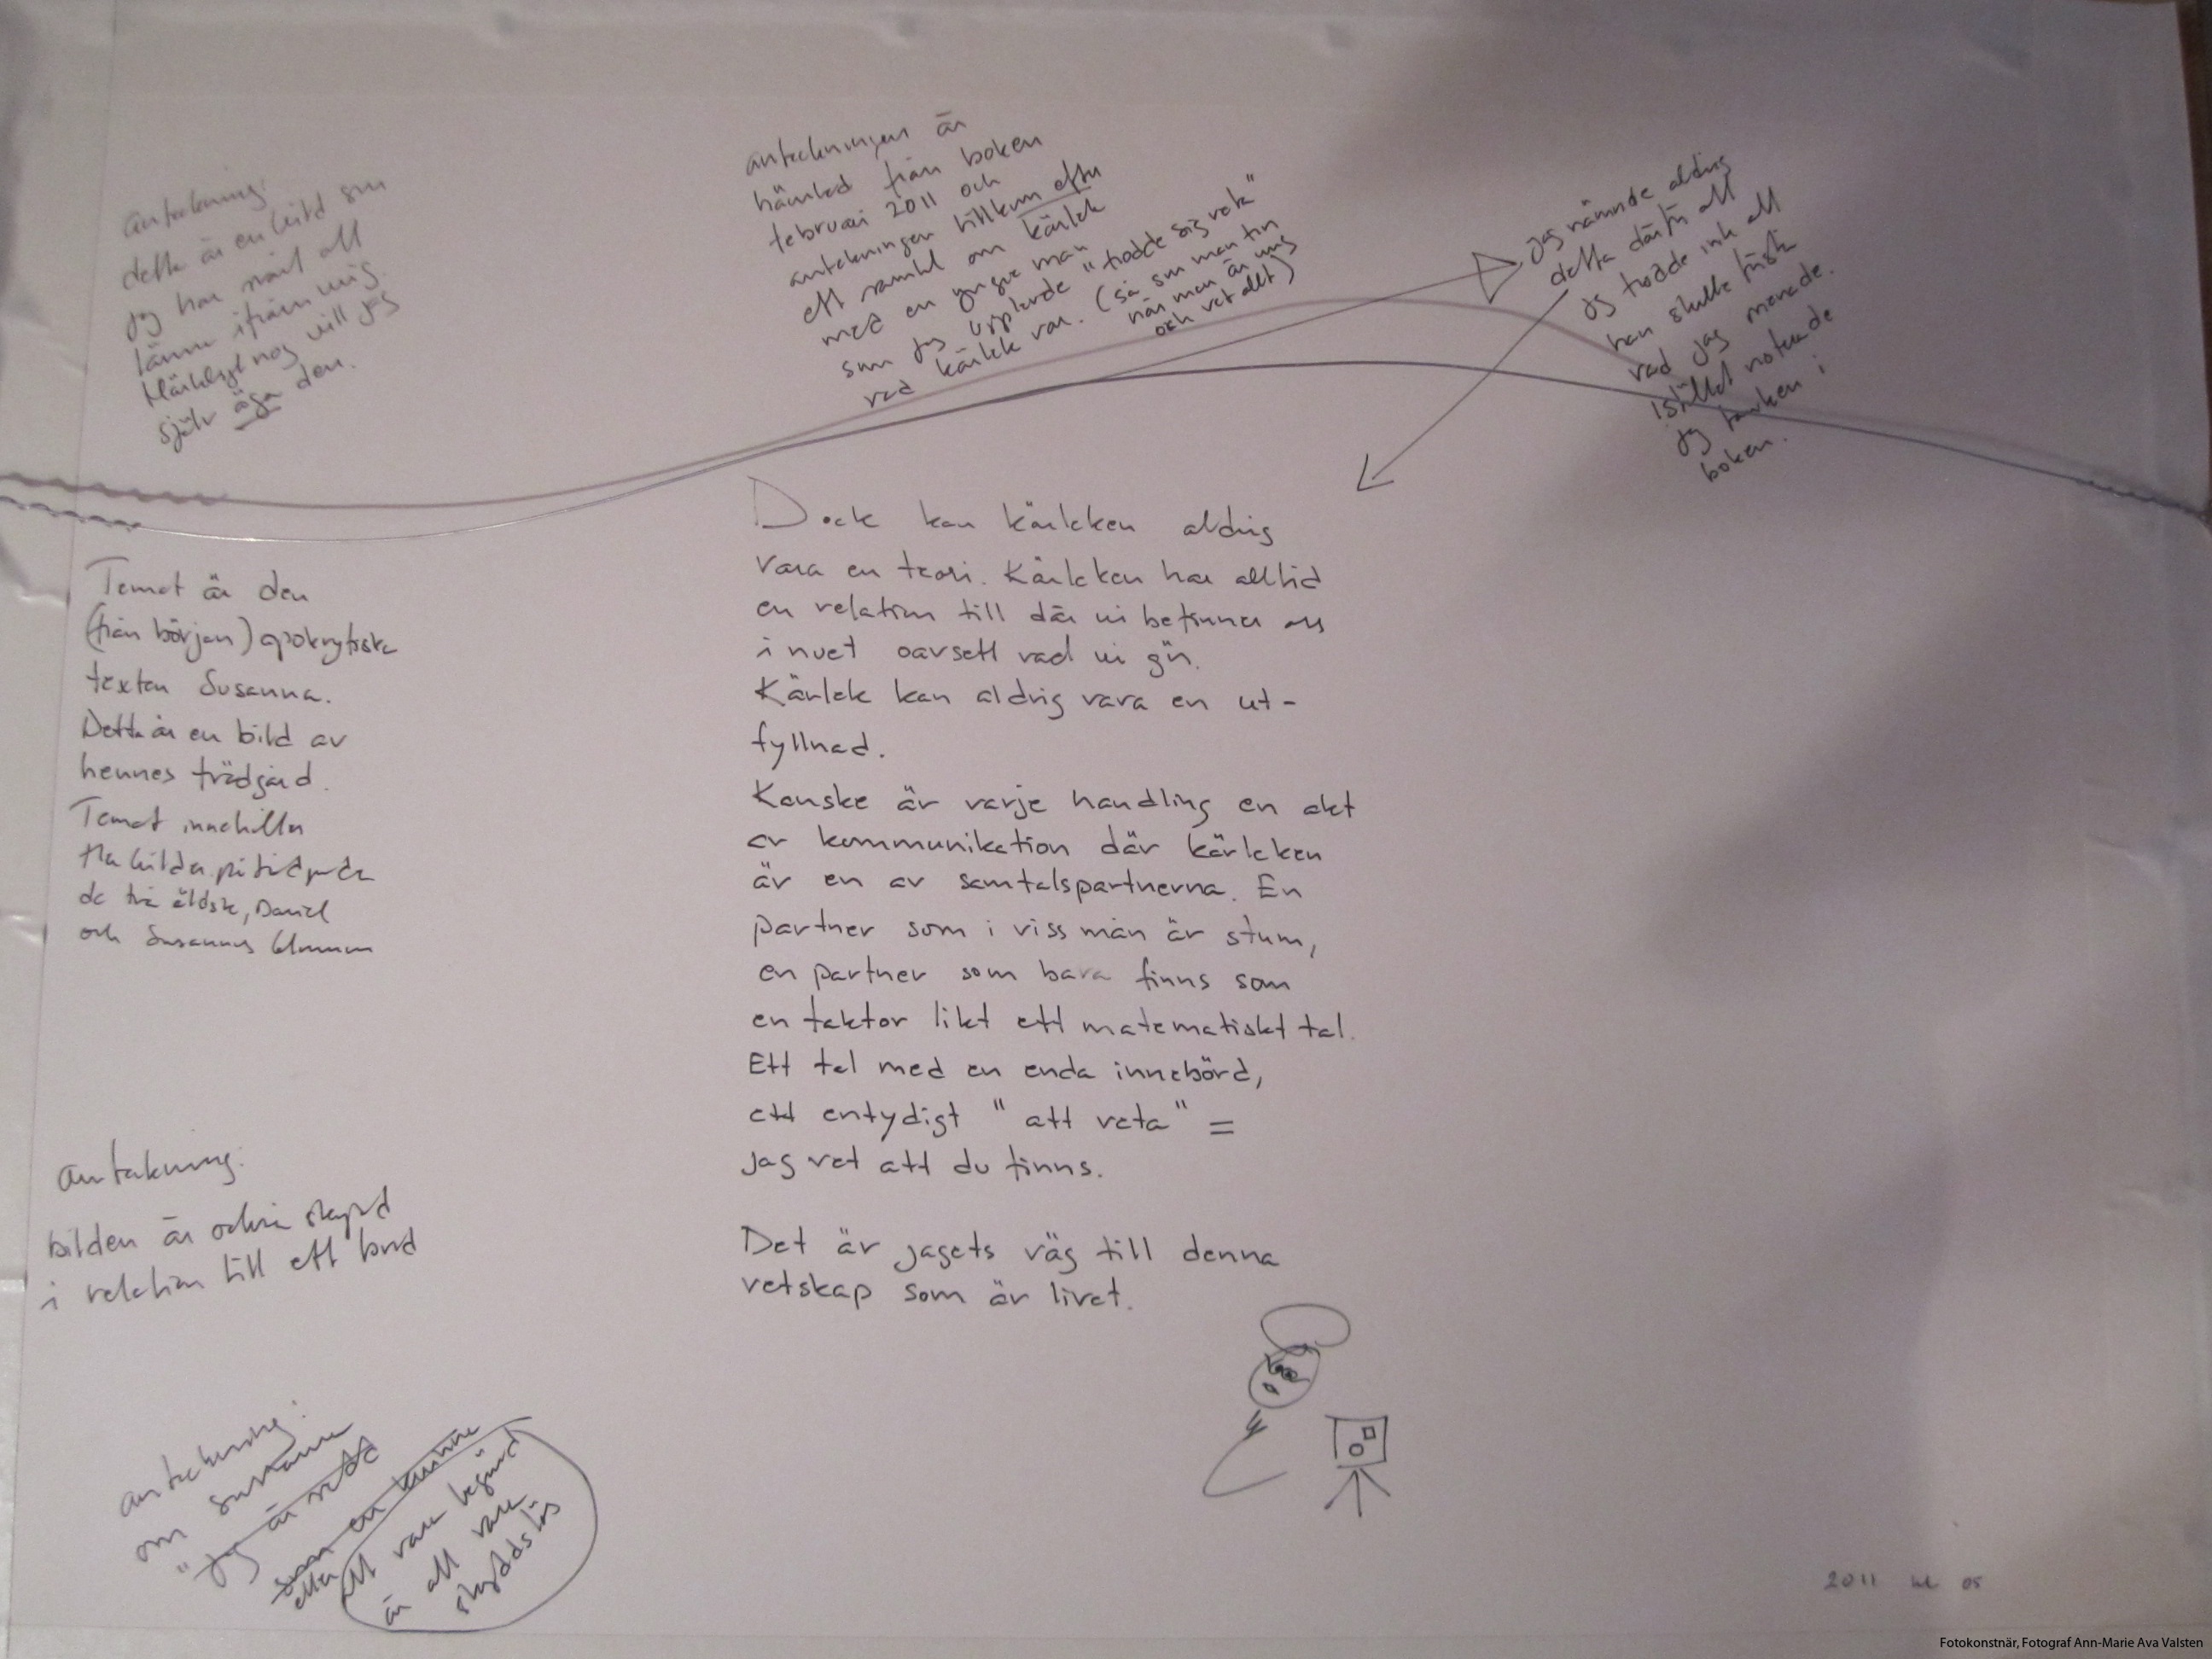 anteckning:
detta är en bild som
jag har svårt att
lämna ifrån mig.
Märkligt nog vill jag
själv äga den.
anteckningen är
hämtad från boken
februari 2011 och
anteckningen tillkom efter
ett samtal om kärlek
med en yngre man
som jag upplevde "trodde sig veta"
vad kärlek var. (så som man tror
när man är ung
och vet allt)
Jag nämnde aldrig
detta därför att
jag trodde inte att
han skulle förstå
vad jag menade.
istället noterade
jag tanken i
boken.
Temat är den
(från början) apokryfiska
texten Susanna.
Detta är en bild av
hennes trädgård.
Temat innehåller
fler bilder
de två äldste, Daniel
och Susannas
Dock kan kärleken aldrig
vara en teori. Kärleken har alltid
en relation till där vi befinner oss
i nuet oavsett vad vi gör.
Kärlek kan aldrig vara en ut-
fyllnad.
Kanske är varje handling en akt
av kommunikation där kärleken
är en av samtalspartnerna. En
partner som i viss mån är stum,
en partner som bara finns som
en faktor likt ett matematiskt tal.
Ett tal med en enda innebörd,
ett entydigt "att veta" =
Jag vet att du finns.
Det är jagets väg till denna
vetskap som är livet.
anteckning:
bilden är också skapad
i relation till ett bord
anteckning:
om Susanna
"Jag är
som en kvinna
eller att vara begärd
är att vara
skyddslös
2011
05
Fotokonstnär, Fotograf Ann-Marie Ava Valsten